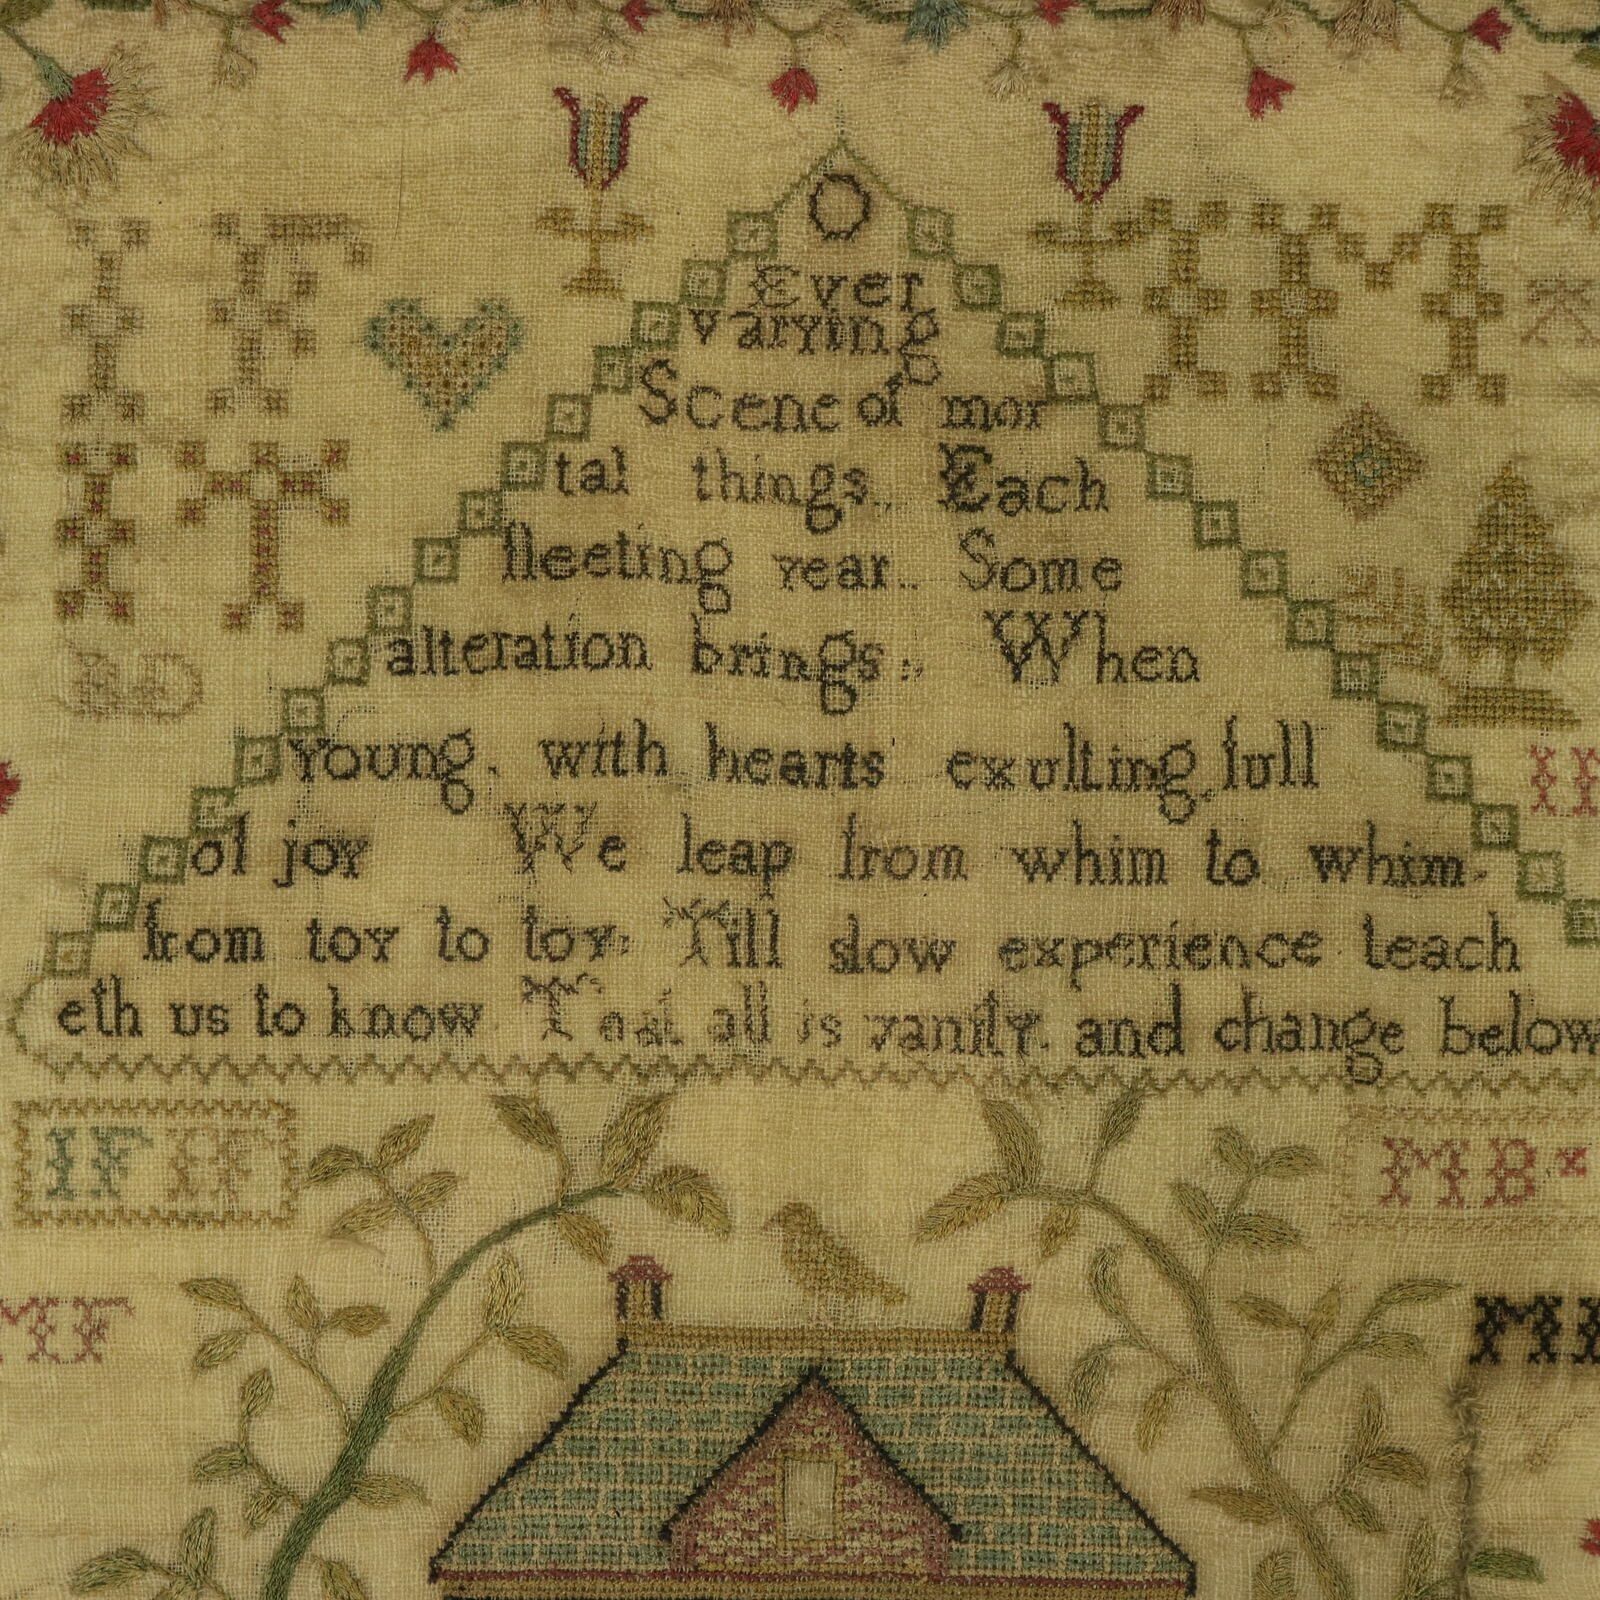 O
Ever
varying
Scene of mor
tal things.. Each
fleeting year.. Some
alteration brings., When
young. with hearts exulting full
of joy We leap from whim to whim.
from toy to toy, Till slow experience teach
eth us to know That all is vanity. and change below
IF
IM
IT
IF IF
MB
MF